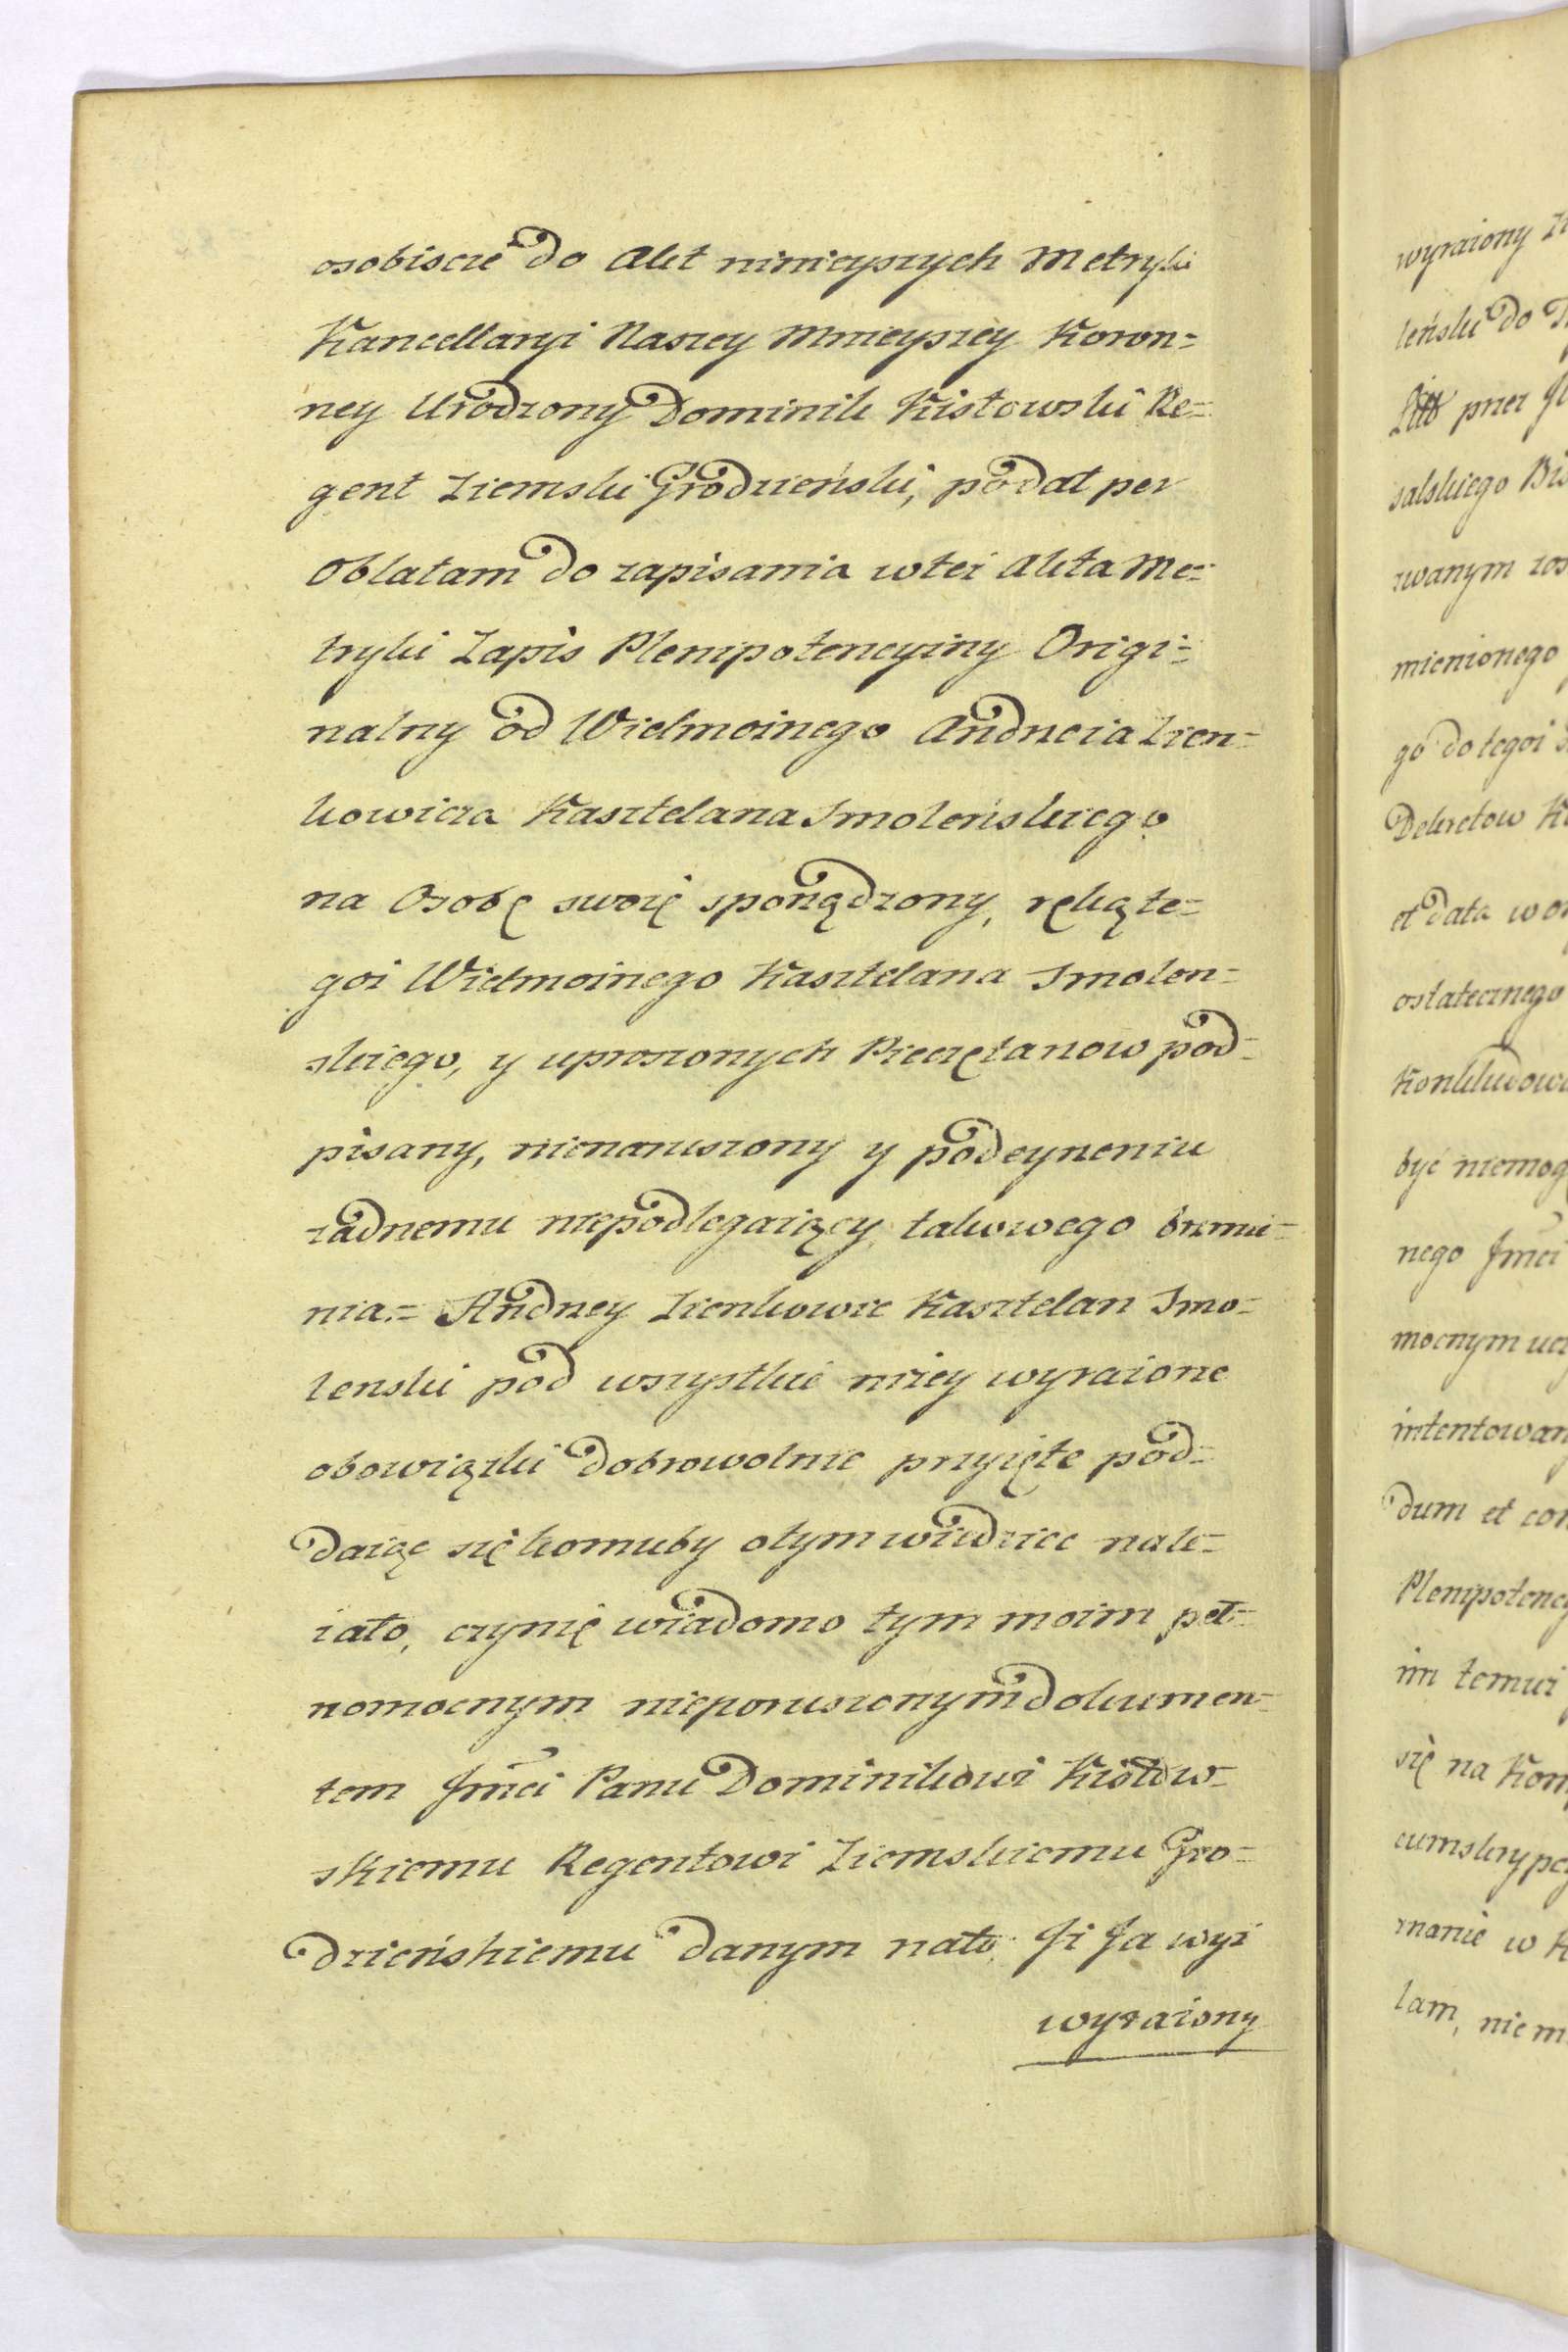 osobiscie do Akt ninieyszych Metryki
Kancellaryi Naszey Mnieyszey Koron=
ney Urodzony Dominik Kistowski Re=
gent Ziemski Grodzieński, podał per
Oblatam do zapisania wteż Akta Me=
tryki Zapis Plenipotencyiny Origi=
nalny od Wielmożnego Andrzeia Zien=
kowicza Kasztelana Smoleńskiego
na Osobę swoię sporządzony, ręką te=
goż Wielmożnego Kasztelana Smolen=
skiego, y uproszonych Pieczętarzow pod=
pisany, nienaruszony y podeyrzeniu
żadnemu niepodlegaiący, takowego brzmie=
nia.= Andrzey Zienkowic Kasztelan Smo=
lenski pod wszystkie niżey wyrażone
obowiązki dobrowolnie przyięte pod=
daiąc się komuby otym wiedziec nale=
żało, czynię wiadomo tym moim peł=
nomocnym nieporuszonym dokumen=
tem Jmći Panu Dominikowi Kistow=
skiemu Regentowi Ziemskiemu Gro=
dzieńskiemu danym nato: Jż Ja wyż
wyrażony
wyrażony
leński do
przez
salskiego
zwanym
mienionego
go do tegoż
Dekretow
et data
ostatecznego
być
nego Jmći
mocnym
dum et
im temuż
się na
manie w
lam,